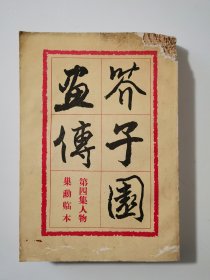 芥子園
畫傳
第四集人物
巢勳临本